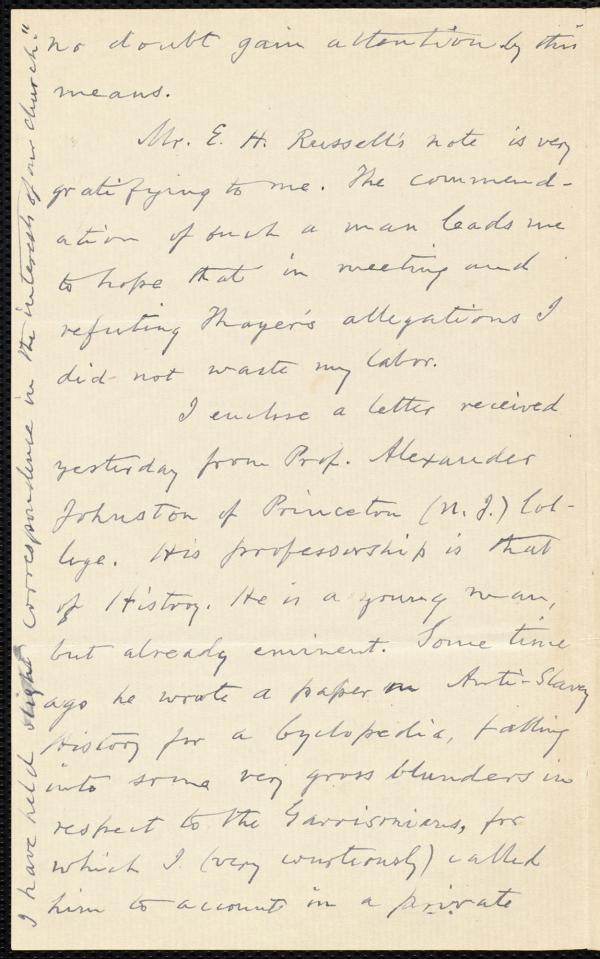 no doubt gain attention by this
means.
Mr. E. H. Russell's note is very
gratifying to me. The commend-
ation of such a man leads me
to hope that in meeting and
refuting Thayer's allegations I
did not waste my labor.
I enclose a letter received
yesterday from Prof. Alexander
Johnston of Princeton (N. J.) Col-
lege. His professorship is that
of History. He is a young man,
but already eminent. Some time
ago he wrote a paper on Anti-Slavery
History for a Cyclopedia, falling
into some very gross blunders in
respect to the Garrisonians, for
which I (very courteously) called
him to account in a private
I have held slight correspondence in the interests of our church."